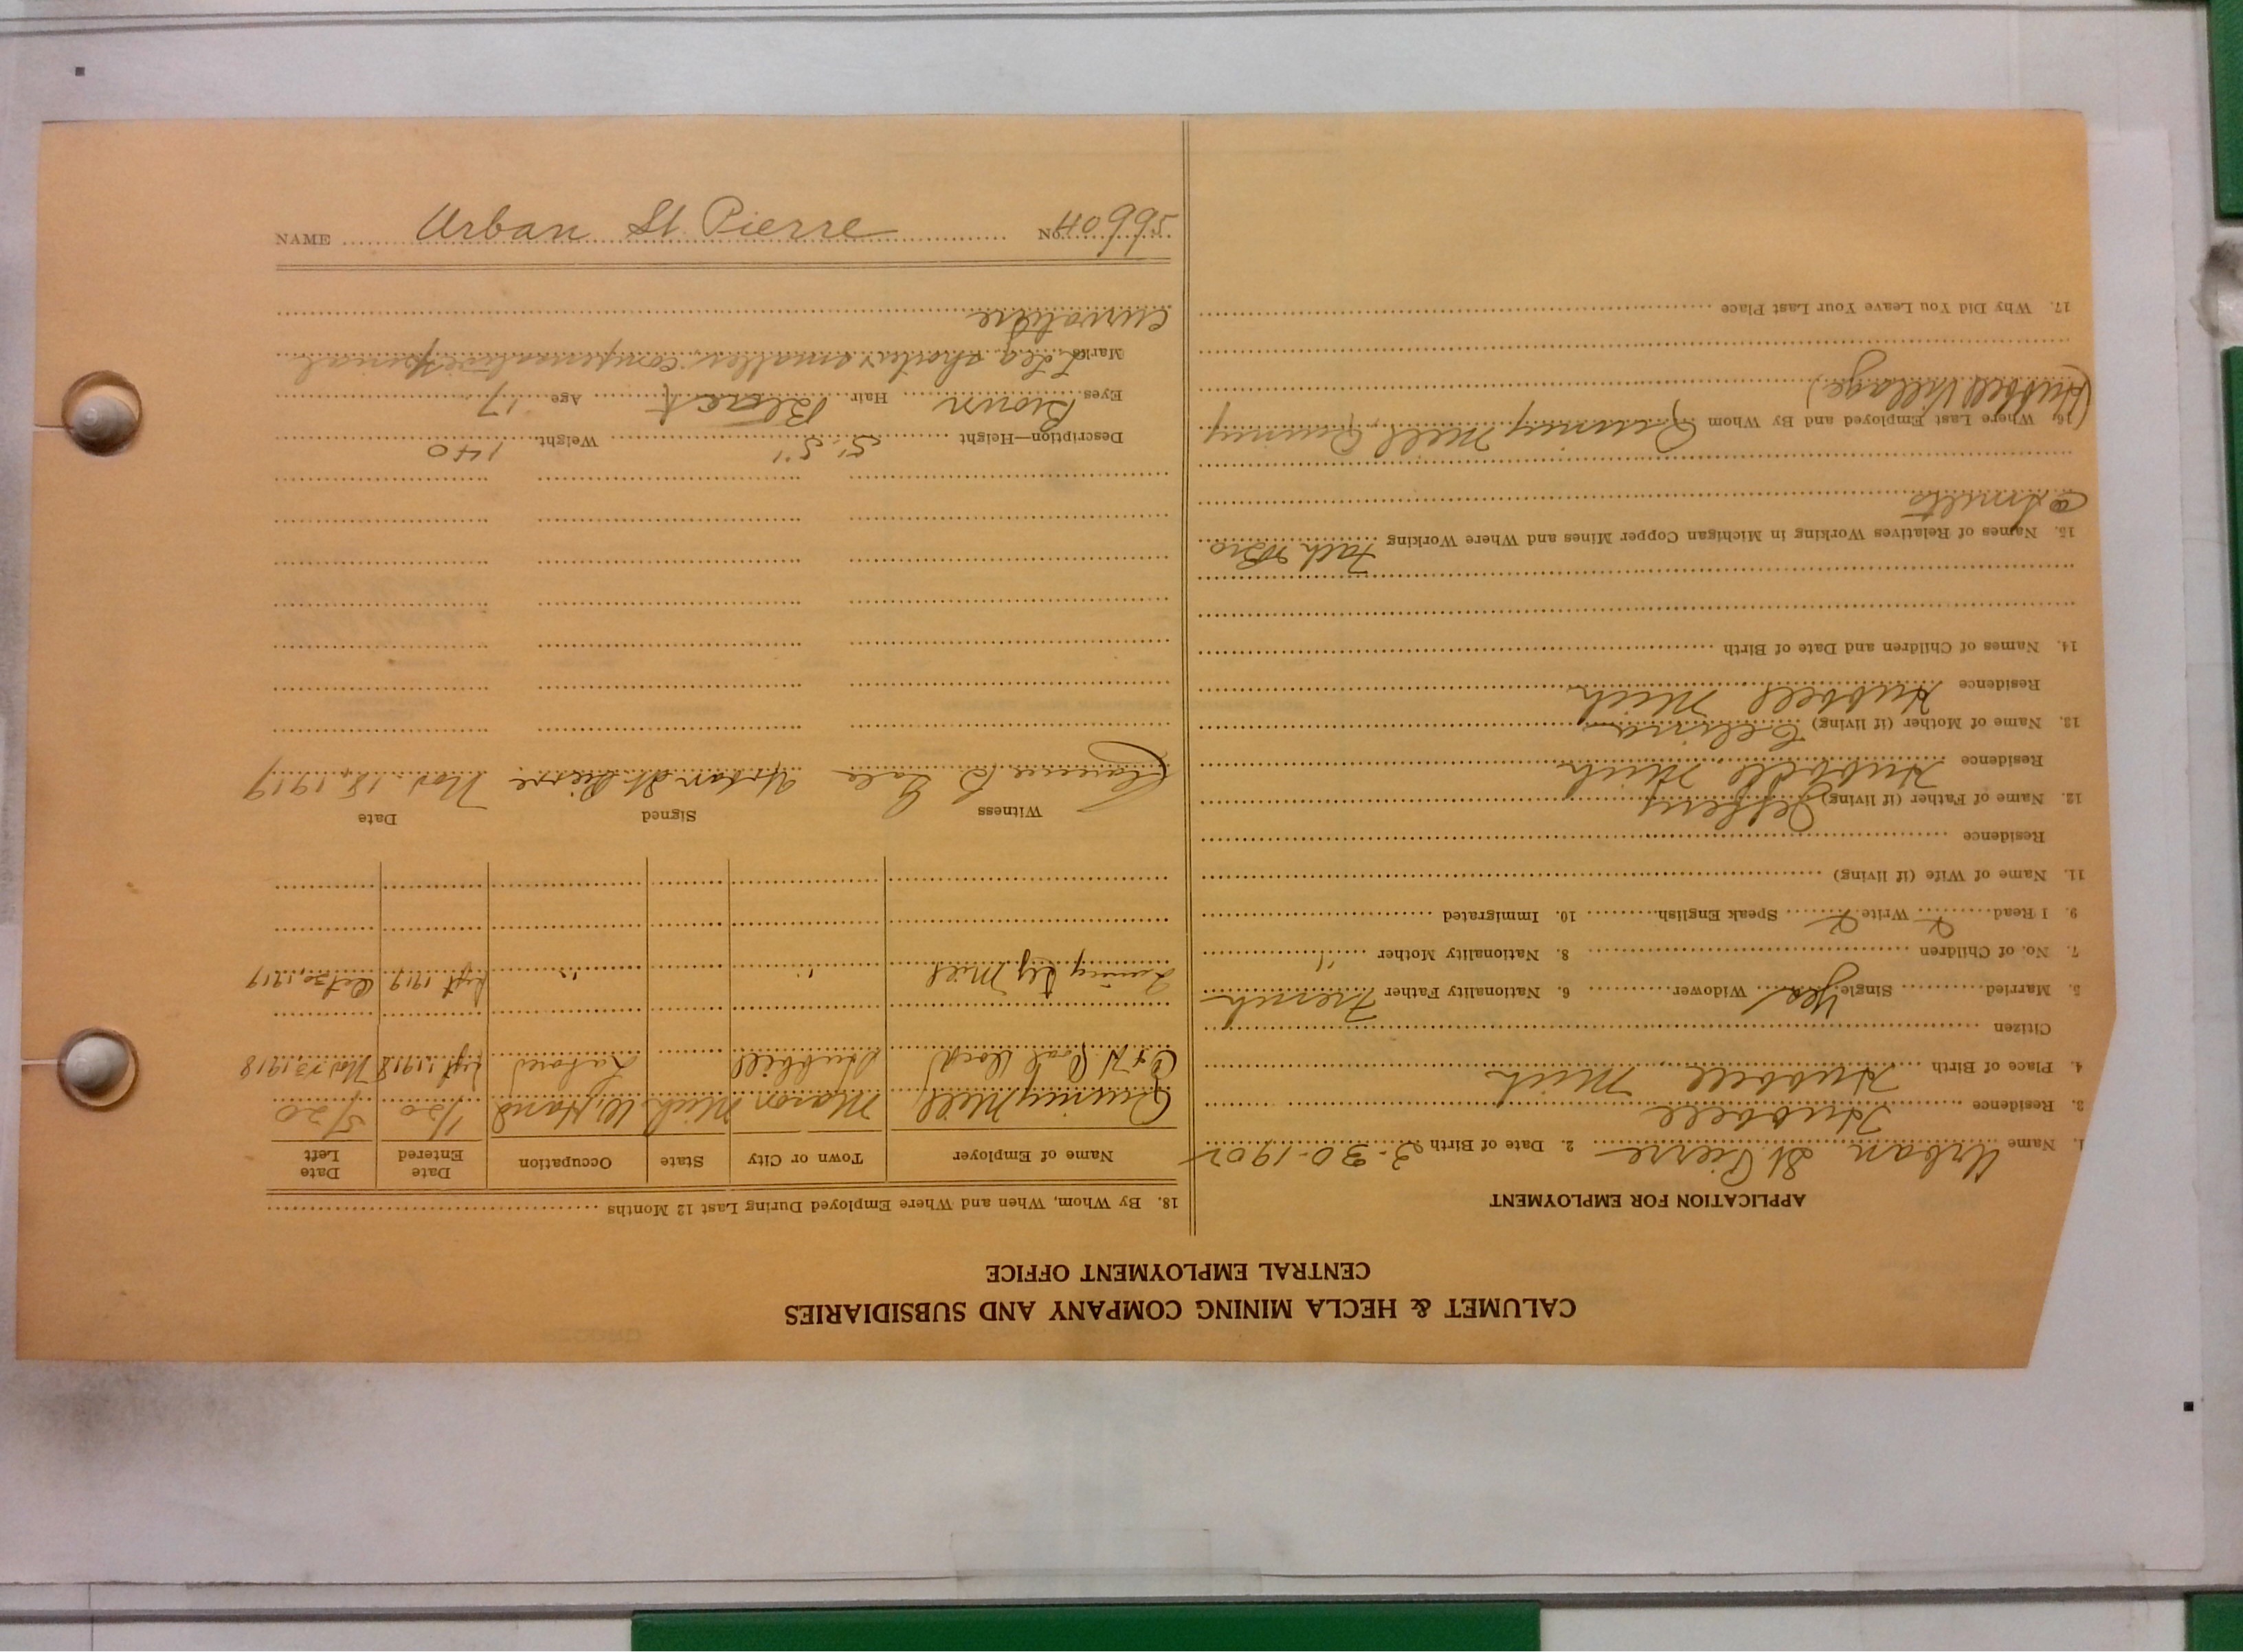 CALUMET & HECLA MINING COMPANY AND SUBSIDIARIES
CENTRAL EMPLOYMENT OFFICE
APPLICATION FOR EMPLOYMENT
1. Name Urban St. Pierre 2. Date of Birth 3-30-1902
3. Residence Hubbell
4. Place of Birth Hubbell, Mich
Citizen
5. Married Single Yes Widower 6. Nationality Father French
7. No. of Children 8. Nationality Mother "
9. I Read Write Speak English 10. Immigrated
11. Name of Wife (if living)
Residence
12. Name of Father (if living) Jeffery
Residence Hubbell Mich
13. Name of Mother (if living) Celina
Residence Hubbell Mich
14. Names of Children and Date of Birth
15. Names of Relatives Working in Michigan Copper Mines and Where Working Fath & Bro
@ Smelts
16. Where Last Employed and By Whom Quincy Mill Quincy
(Hubbell Village)
17. Why Did You Leave Your Last Place
18. By Whom, When and Where Employed During Last 12 Months
Name of Employer Town or City State Occupation Date Entered Date Left
Quincy Mill Mason Mich W. Hand 1/20 5/20
C & H Coal Dock Hubbell Laborer Sept. 1918 Nov. 23 1918
Quincy Mill " " Sept 1919 Oct 30, 1919
Witness Signed Date
Clarence B. Urban St. Pierre Nov. 18, 1919
Description—Height 5' 5" Weight 140
Eyes Brown Hair Black Age 17
Marks L Leg shorter & smaller, compensative spinal
curvature
NAME Urban St. Pierre No. 40995